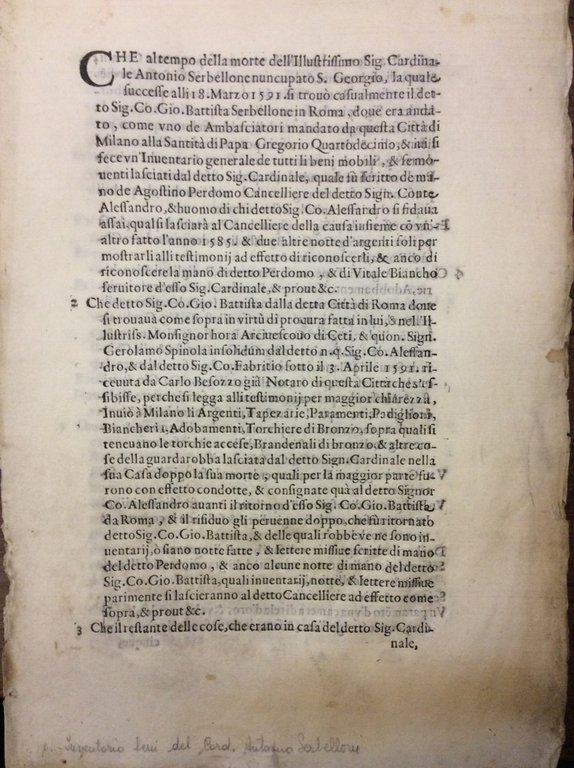 CHE al tempo della morte dell'Illustrissimo Sig. Cardina-
le Antonio Serbellone nuncupato S. Georgio, la quale
successe alli 18. Marzo 1591. si trouò casualmente il det-
to Sig. Co. Gio. Battista Serbellone in Roma, doue era anda-
to, come vno de Ambasciatori mandato da questa Città di
Milano alla Santità di Papa Gregorio Quartodecimo, & iui si
fece vn Inuentario generale de tutti li beni mobili, & semo-
uenti lasciati dal detto Sig. Cardinale, quale fù scritto de ma-
no de Agostino Perdomo Cancelliere del detto Sign. Conte
Alessandro, & huomo di chi detto Sig. Co. Alessandro si fidaua
assai, qual si lasciarà al Cancelliere della causa insieme cō vn'
altro fatto l'anno 1585. & due altre notte d'argenti soli per
mostrarli alli testimonij ad effetto di riconoscerli, & anco di
riconoscere la mano di detto Perdomo, & di Vitale Biancho
seruitore d'esso Sig. Cardinale, & prout &c.
2 Che detto Sig. Co. Gio. Battista dalla detta Città di Roma doue
si trouaua come sopra in virtù di procura fatta in lui, & nell'Il-
lustriss. Monsignor hora Arciuescouo di Ceti, & quon. Sign.
Gerolamo Spinola insolidum dal detto n.q. Sig. Co. Alessan-
dro, & dal detto Sig. Co. Fabritio sotto il 3. Aprile 1591. ri-
ceuuta da Carlo Besozzo già Notaro di questa Città che s'es-
sibisse, perche si legga alli testimonij per maggior chiarezza,
Inuiò à Milano li Argenti, Tapezarie, Paramenti, Padiglioni,
Biancheria, Adobamenti, Torchiere di Bronzo, sopra quali si
teneuano le torchie accese, Brandenali di bronzo, & altre co-
se della guardarobba lasciata dal detto Sign. Cardinale nella
sua Casa doppo la sua morte, quali per la maggior parte fu-
rono con effetto condotte, & consignate quà al detto Signor
Co. Alessandro auanti il ritorno d'esso Sig. Co. Gio. Battista
da Roma, & il risiduo gli peruenne doppo, che fù ritornato
detto Sig. Co. Gio. Battista, & delle quali robbe ve ne sono in-
uentarij, ò siano notte fatte, & lettere missiue scritte di mano
del detto Perdomo, & anco alcune notte di mano del detto
Sig. Co. Gio. Battista, quali inuentarij, notte, & lettere missiue
parimente si lascieranno al detto Cancelliere ad effetto come
sopra, & prout &c.
3 Che il restante delle cose, che erano in casa del detto Sig. Cardi-
nale,
Inventario beni del Card. Antonio Serbelloni